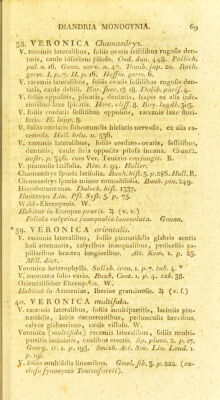 DIANDRIA MONOGYNIA. 69
38. VERONICA Chamaedrys.
V. racemis lateralibus, foliis ovatis sessilibus rugosis den-
tatis, caule bifariam piloso. Oed. dan. 448. Pollich.
pal. n. 16. Gmn. norv. n. 47. Tausk. jap. 20. Roth.
germ. I. p. 7. II. p. 16. Hoffm. germ. 6.
V. racemis lateralibus, foliis cordato-ovatis sessilibus rugosis
dentatis, caule debili.
V. foliis oppositis, plicatis, dentatis, scapis ex alis infe-
rioribus laxe spicatis. Hort. cliff. 8. Roy. lugdb. 303.
V. foliis cordatis sessilibus oppositis, racemis laxe flori-
feris. Fl. lapp. 8.
V. foliis cordatis subrotundis hirsutis nervosis, ex alis ra-
cemosa. Hall. helv. n. 536.
V. racemis lateralibus, foliis cordatis, ovatis, sessilibus,
dentatis; caule stria opposita pilosa incano.
V. pratensis latifolia. Riv. t. 94. Haller.
Chamaedrys spuria latifolia. Bauh. hist. 3. p. 286. Hall. R.
Chamaedrys spuria minor rotundifolia. Bauh. pin. 249.
Hierrobotanicum.
Houttuyn Lin. Pfl. Syst. 5. p. 75.
Wild-Ehrenpreis. W.
Habitat in Europae pratis. ♃ (v. v.)
Foliola calycina inaequalia lanceolata. Gouan.
*39. VERONICA orientalis.
V. racemis lateralibus, foliis pinnatifidis glabris acutis
basi attenuatis, calycibus inaequalibus, pedicellis ca-
pillaribus bractea longioribus. Ait. Kew. 1. p. 23.
Mill. dict.
Veronica heterophylla. Salisb. icon. 1. p. 7. tab. 4. *
V. montana folio vario. Buxb. Cent. 1. p. 4. tab. 38.
Orientalischer Ehrenpreis. W.
Habitat in Armeniae, Iberiae graminosis. ♃ (v. s.)
40. VERONICA multifida.
V. racemis lateralibus, foliis multipartitis, laciniis pin-
natifidis, lobis decurrentibus, pedunculis brevibus,
calyce glaberrimo, caule villoso. W.
Veronica (multifida) racemis lateralibus, foliis multi-
partitis laciniatis, caulibus erectis. Sp. plant. 2. p. 17.
Georg. it. 1. p. 195. Smith. Act. Soc. Lin. Lond. 1.
p. 195.
V. foliis multifidis linearibus. Gmel. sib. 3. p. 222. (ex-
cluso synonymo Tournefortii).